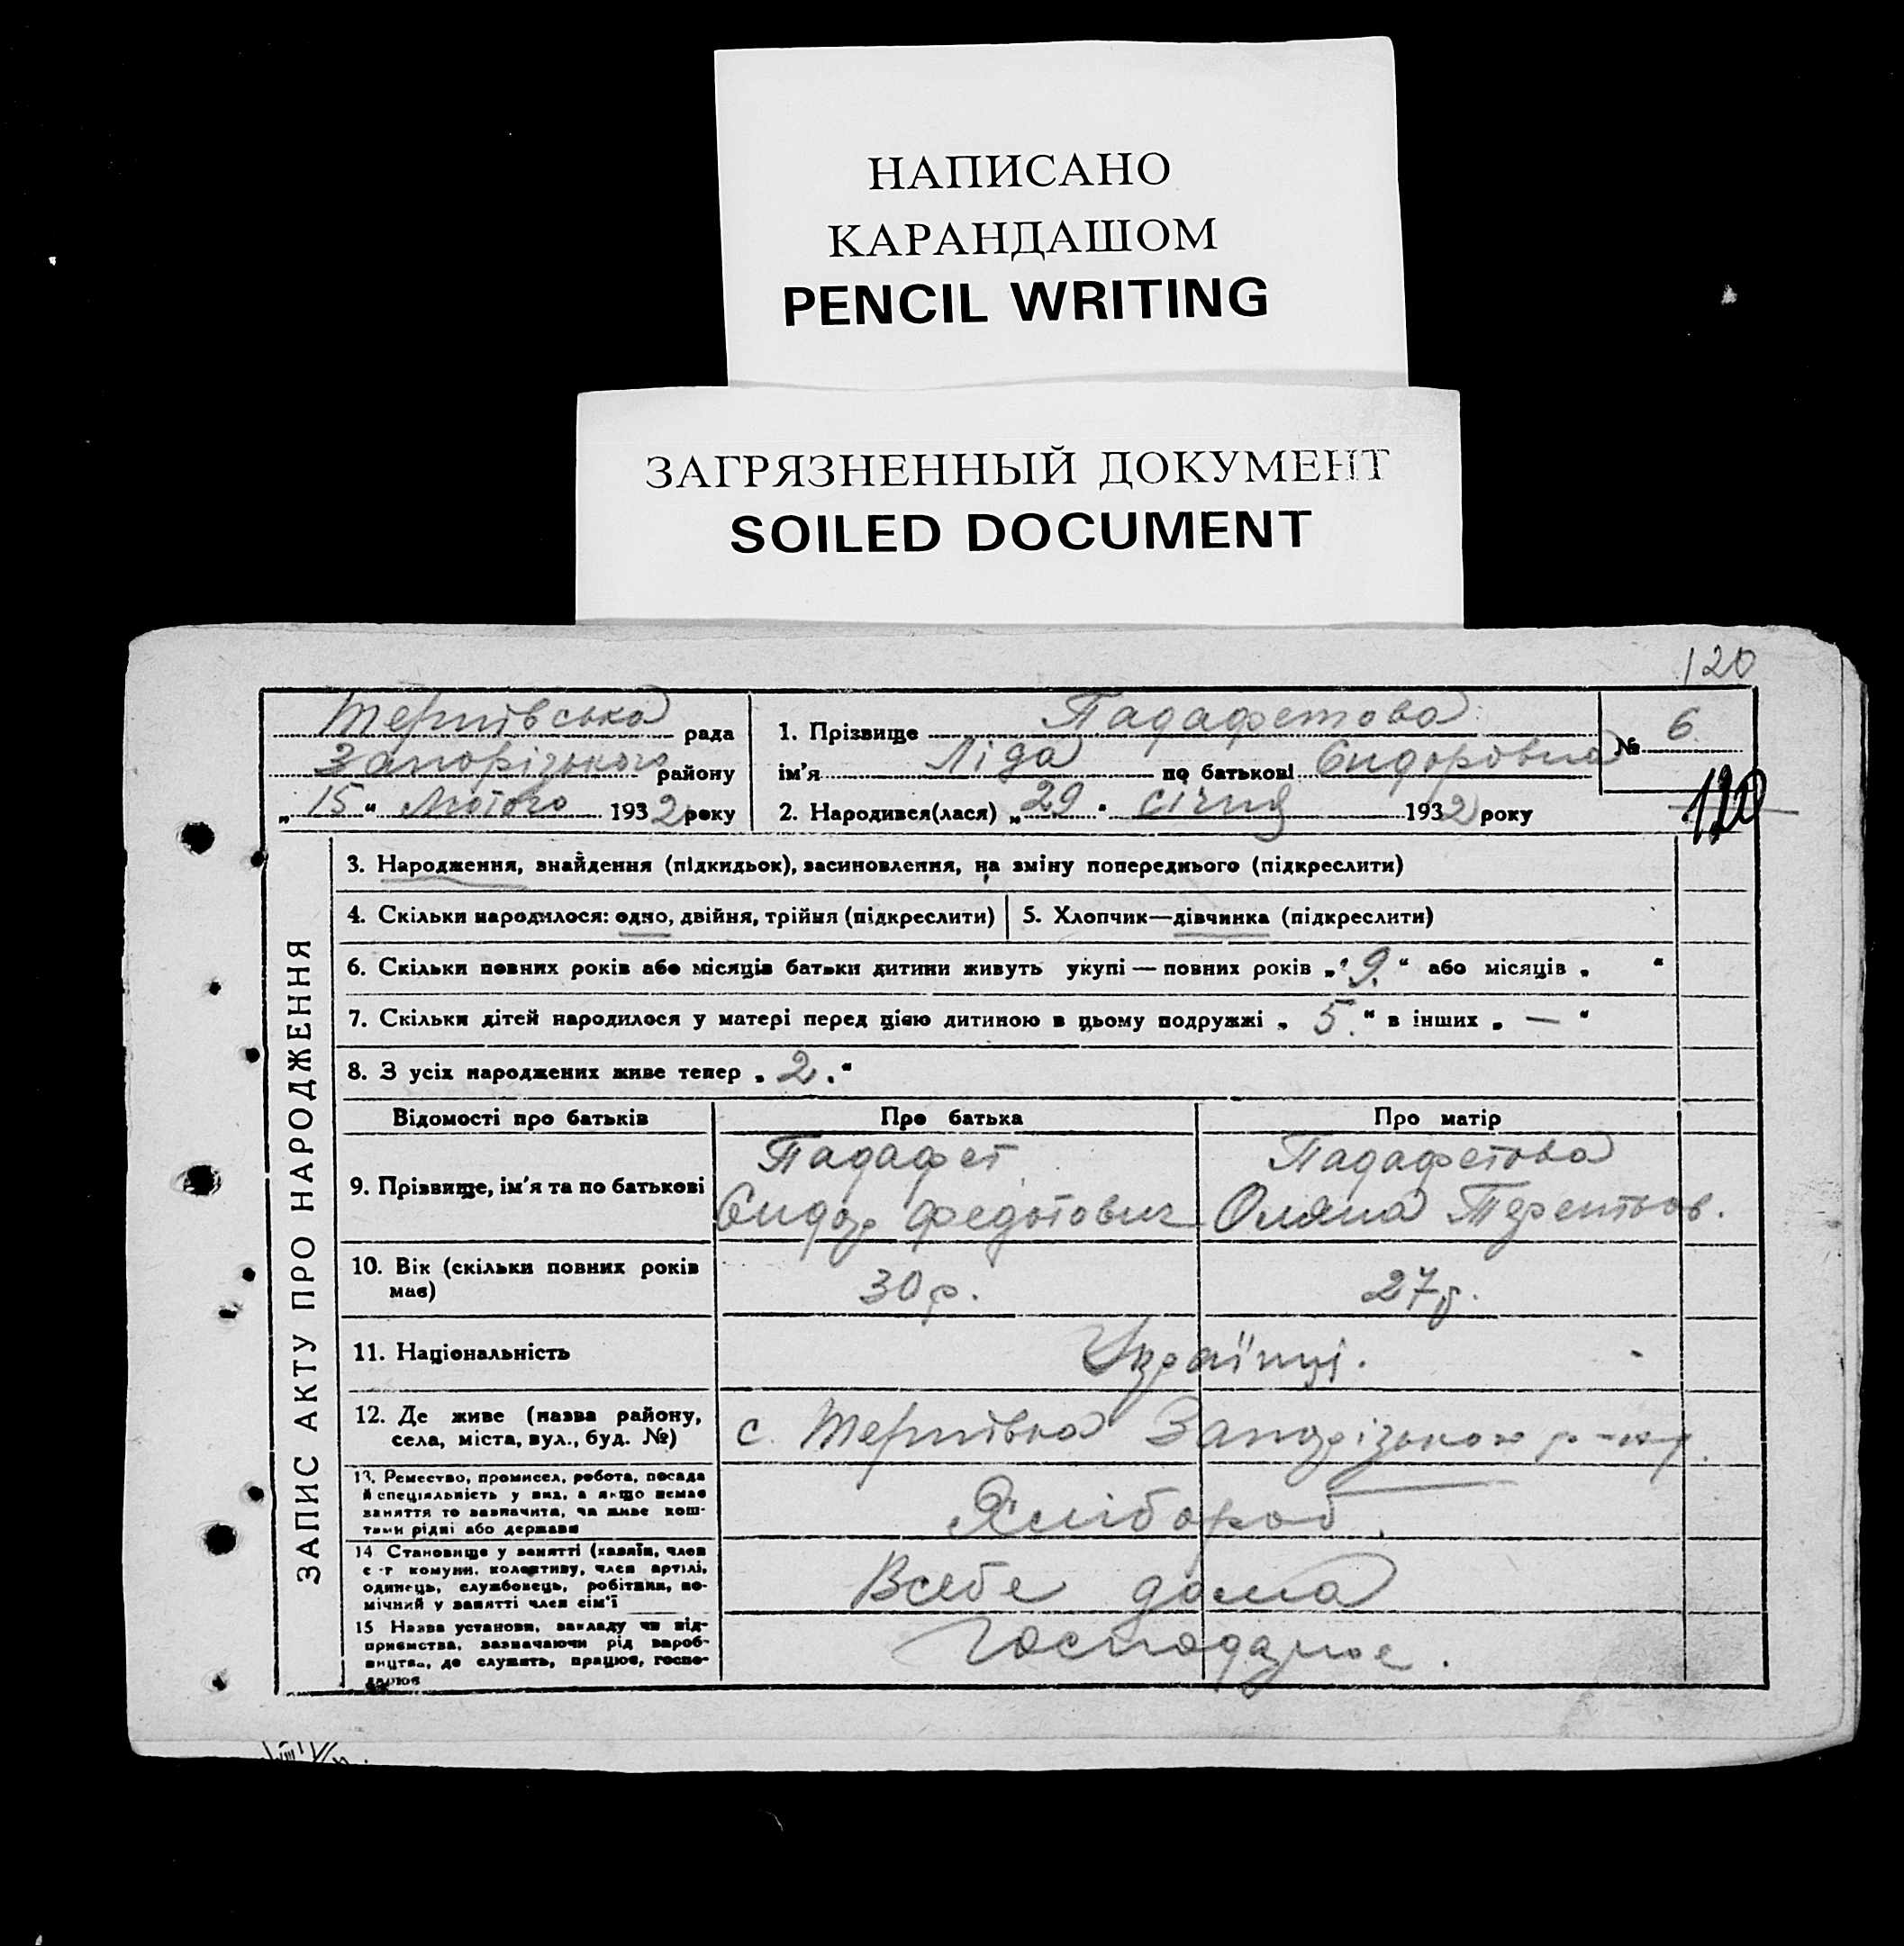 НАПИСАНО
КАРАНДАШОМ
PENCIL WRITING
ЗАГРЯЗНЕННЫЙ ДОКУМЕНТ
SOILED DOCUMENT
120
Тернівська рада
Запорізького району
„15“ Лютого 1932 року
1. Прізвище Падафетова
ім'я Ліда по батькові Сидоровна
2. Народився(лася) „29“ січня 1932 року
№ 6.
120
ЗАПИС АКТУ ПРО НАРОДЖЕННЯ
3. Народження, знайдення (підкидьок), засиновлення, на зміну попереднього (підкреслити)
4. Скільки народилося: одно, двійня, трійня (підкреслити) 5. Хлопчик—дівчинка (підкреслити)
6. Скільки повних років або місяців батьки дитини живуть укупі — повних років „9.“ або місяців „ “
7. Скільки дітей народилося у матері перед цією дитиною в цьому подружжі „5.“ в інших „—“
8. З усіх народжених живе тепер „2.“
Відомості про батьків Про батька Про матір
9. Прізвище, ім'я та по батькові
Падафет
Сидор Федотович
Падафетова
Оляна Терентьов.
10. Вік (скільки повних років
має)
30 р.
27 р.
11. Національність
Українці.
12. Де живе (назва району,
села, міста, вул., буд. №)
с. Тернівка Запорізького р-ну.
13. Ремество, промисел, робота, посада
й спеціяльність у них, а якщо немає
заняття то зазначити, чи живе кош-
тами рідні або держави
Хлібороб.
14 Становище у занятті (хазяїн, член
с-г комуни, колективу, член артілі,
одинець, службовець, робітник, по-
мічний у занятті член сім'ї
Всебе дома
15 Назва установи, закладу чи під-
приємства, зазначаючи рід вироб-
ництва, де служить, працює, госпо-
дарює
Господарює.